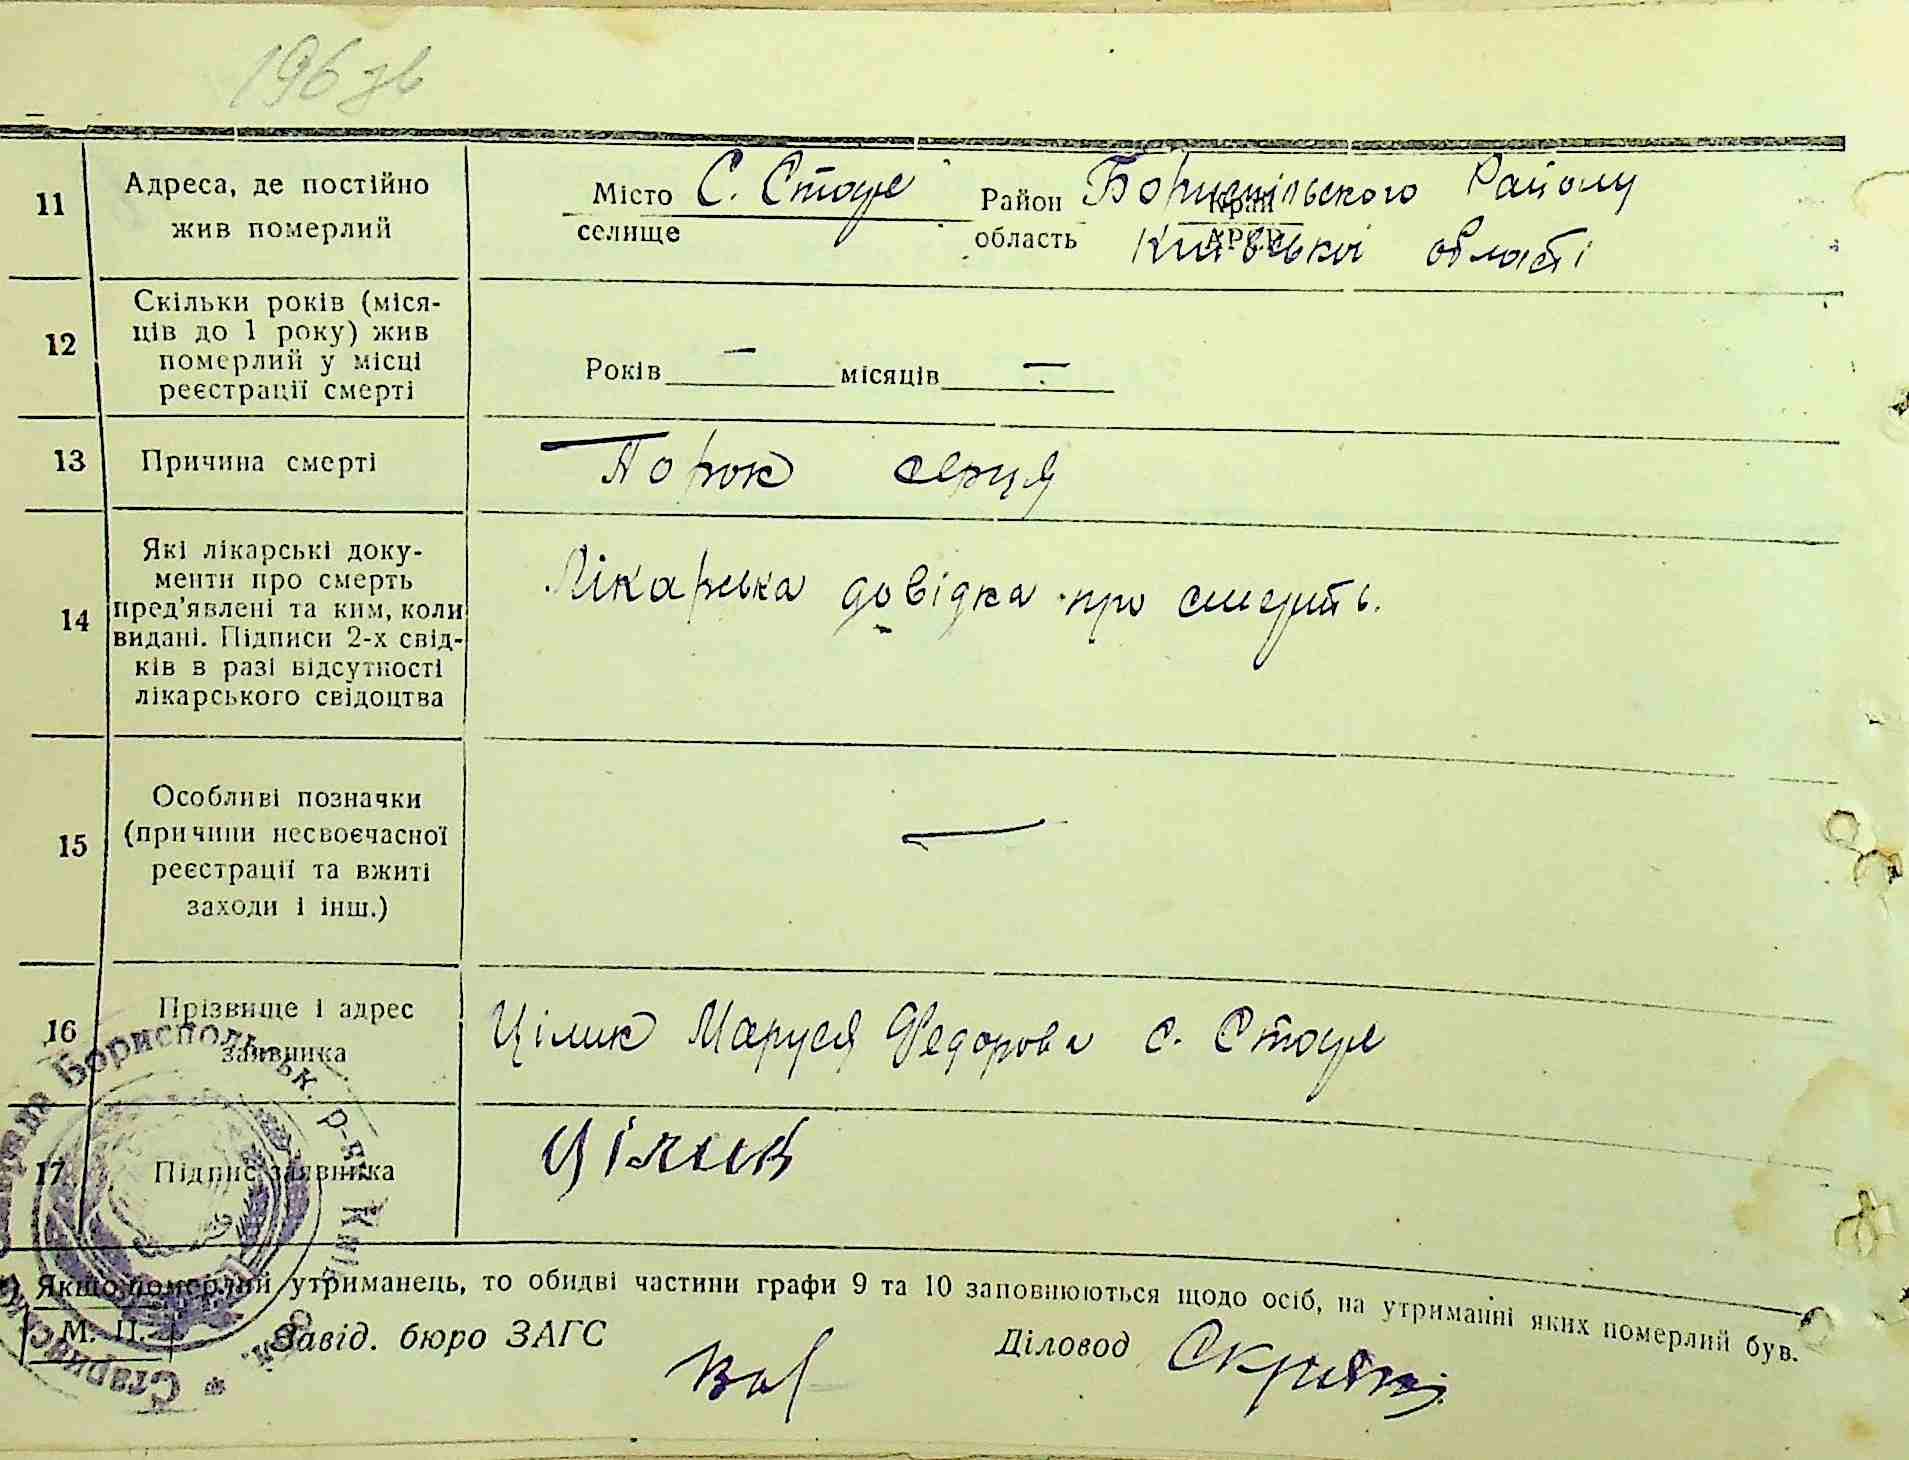 196 зв
11 Адреса, де постійно жив померлий
Місто селище С. Стоуе Район область Край АРСР Бориспільського Району
Київської області
12 Скільки років (міся-
ців до 1 року) жив
померлий у місці
реєстрації смерті
Років — місяців —
13 Причина смерті Порок серця
14 Які лікарські доку-
менти про смерть
пред'явлені та ким, коли
видані. Підписи 2-х свід-
ків в разі відсутності
лікарського свідоцтва
Лікарська довідка про смерть.
15 Особливі позначки
(причини несвоєчасної
реєстрації та вжиті
заходи і інш.)
—
16 Прізвище і адрес
заявника
Цілик Маруся Федоровa с. Стоуе
17 Підпис заявника Цілик
Якщо померлий утриманець, то обидві частини графи 9 та 10 заповнюються щодо осіб, на утриманні яких померлий був.
М. П. Завід. бюро ЗАГС Діловод
Бориспольськ. р-ну Київ